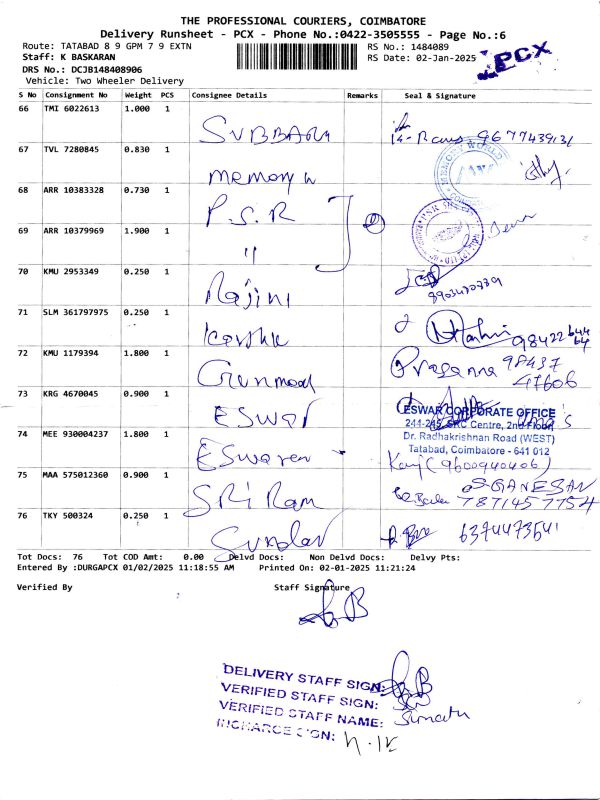 THE PROFESSIONAL COURIERS, COIMBATORE
Delivery Runsheet - PCX - Phone No.:0422-3505555 - Page No.:6
Route: TATABAD 8 9 GPM 7 9 EXTN
RS No.: 1484089
PCX
Staff: K BASKARAN
RS Date: 02-Jan-2025
DRS No.: DCJB148408906
Vehicle: Two Wheeler Delivery
S No Consignment No Weight PCS Consignee Details Remarks Seal & Signature
66 TMI 6022613 1.000 1
SUBBARA 9677439131
67 TVL 7280845 0.830 1
memory w MEMORY WORLD
68 ARR 10383328 0.730 1
P.S.R
69 ARR 10379969 1.900 1
"
70 KMU 2953349 0.250 1
Rajini 8903470739
71 SLM 361797975 0.250 1
Karthk 98422 644 64
72 KMU 1179394 1.800 1
Gunmood Prasanna 98437 47606
73 KRG 4670045 0.900 1
ESWAR
ESWAR CORPORATE OFFICE
244-245, SRC Centre, 2nd Floor,
Dr. Radhakrishnan Road (WEST)
Tatabad, Coimbatore - 641 012
74 MEE 930004237 1.800 1
ESwaren (9600940406)
75 MAA 575012360 0.900 1
SRi Ram S.GANESAN 7871457754
76 TKY 500324 0.250 1
Sundar 6374473541
Tot Docs: 76 Tot COD Amt: 0.00 Delvd Docs: Non Delvd Docs: Delvy Pts:
Entered By :DURGAPCX 01/02/2025 11:18:55 AM Printed On: 02-01-2025 11:21:24
Verified By Staff Signature
DELIVERY STAFF SIGN:
VERIFIED STAFF SIGN:
VERIFIED STAFF NAME:
INCHARGE SIGN: